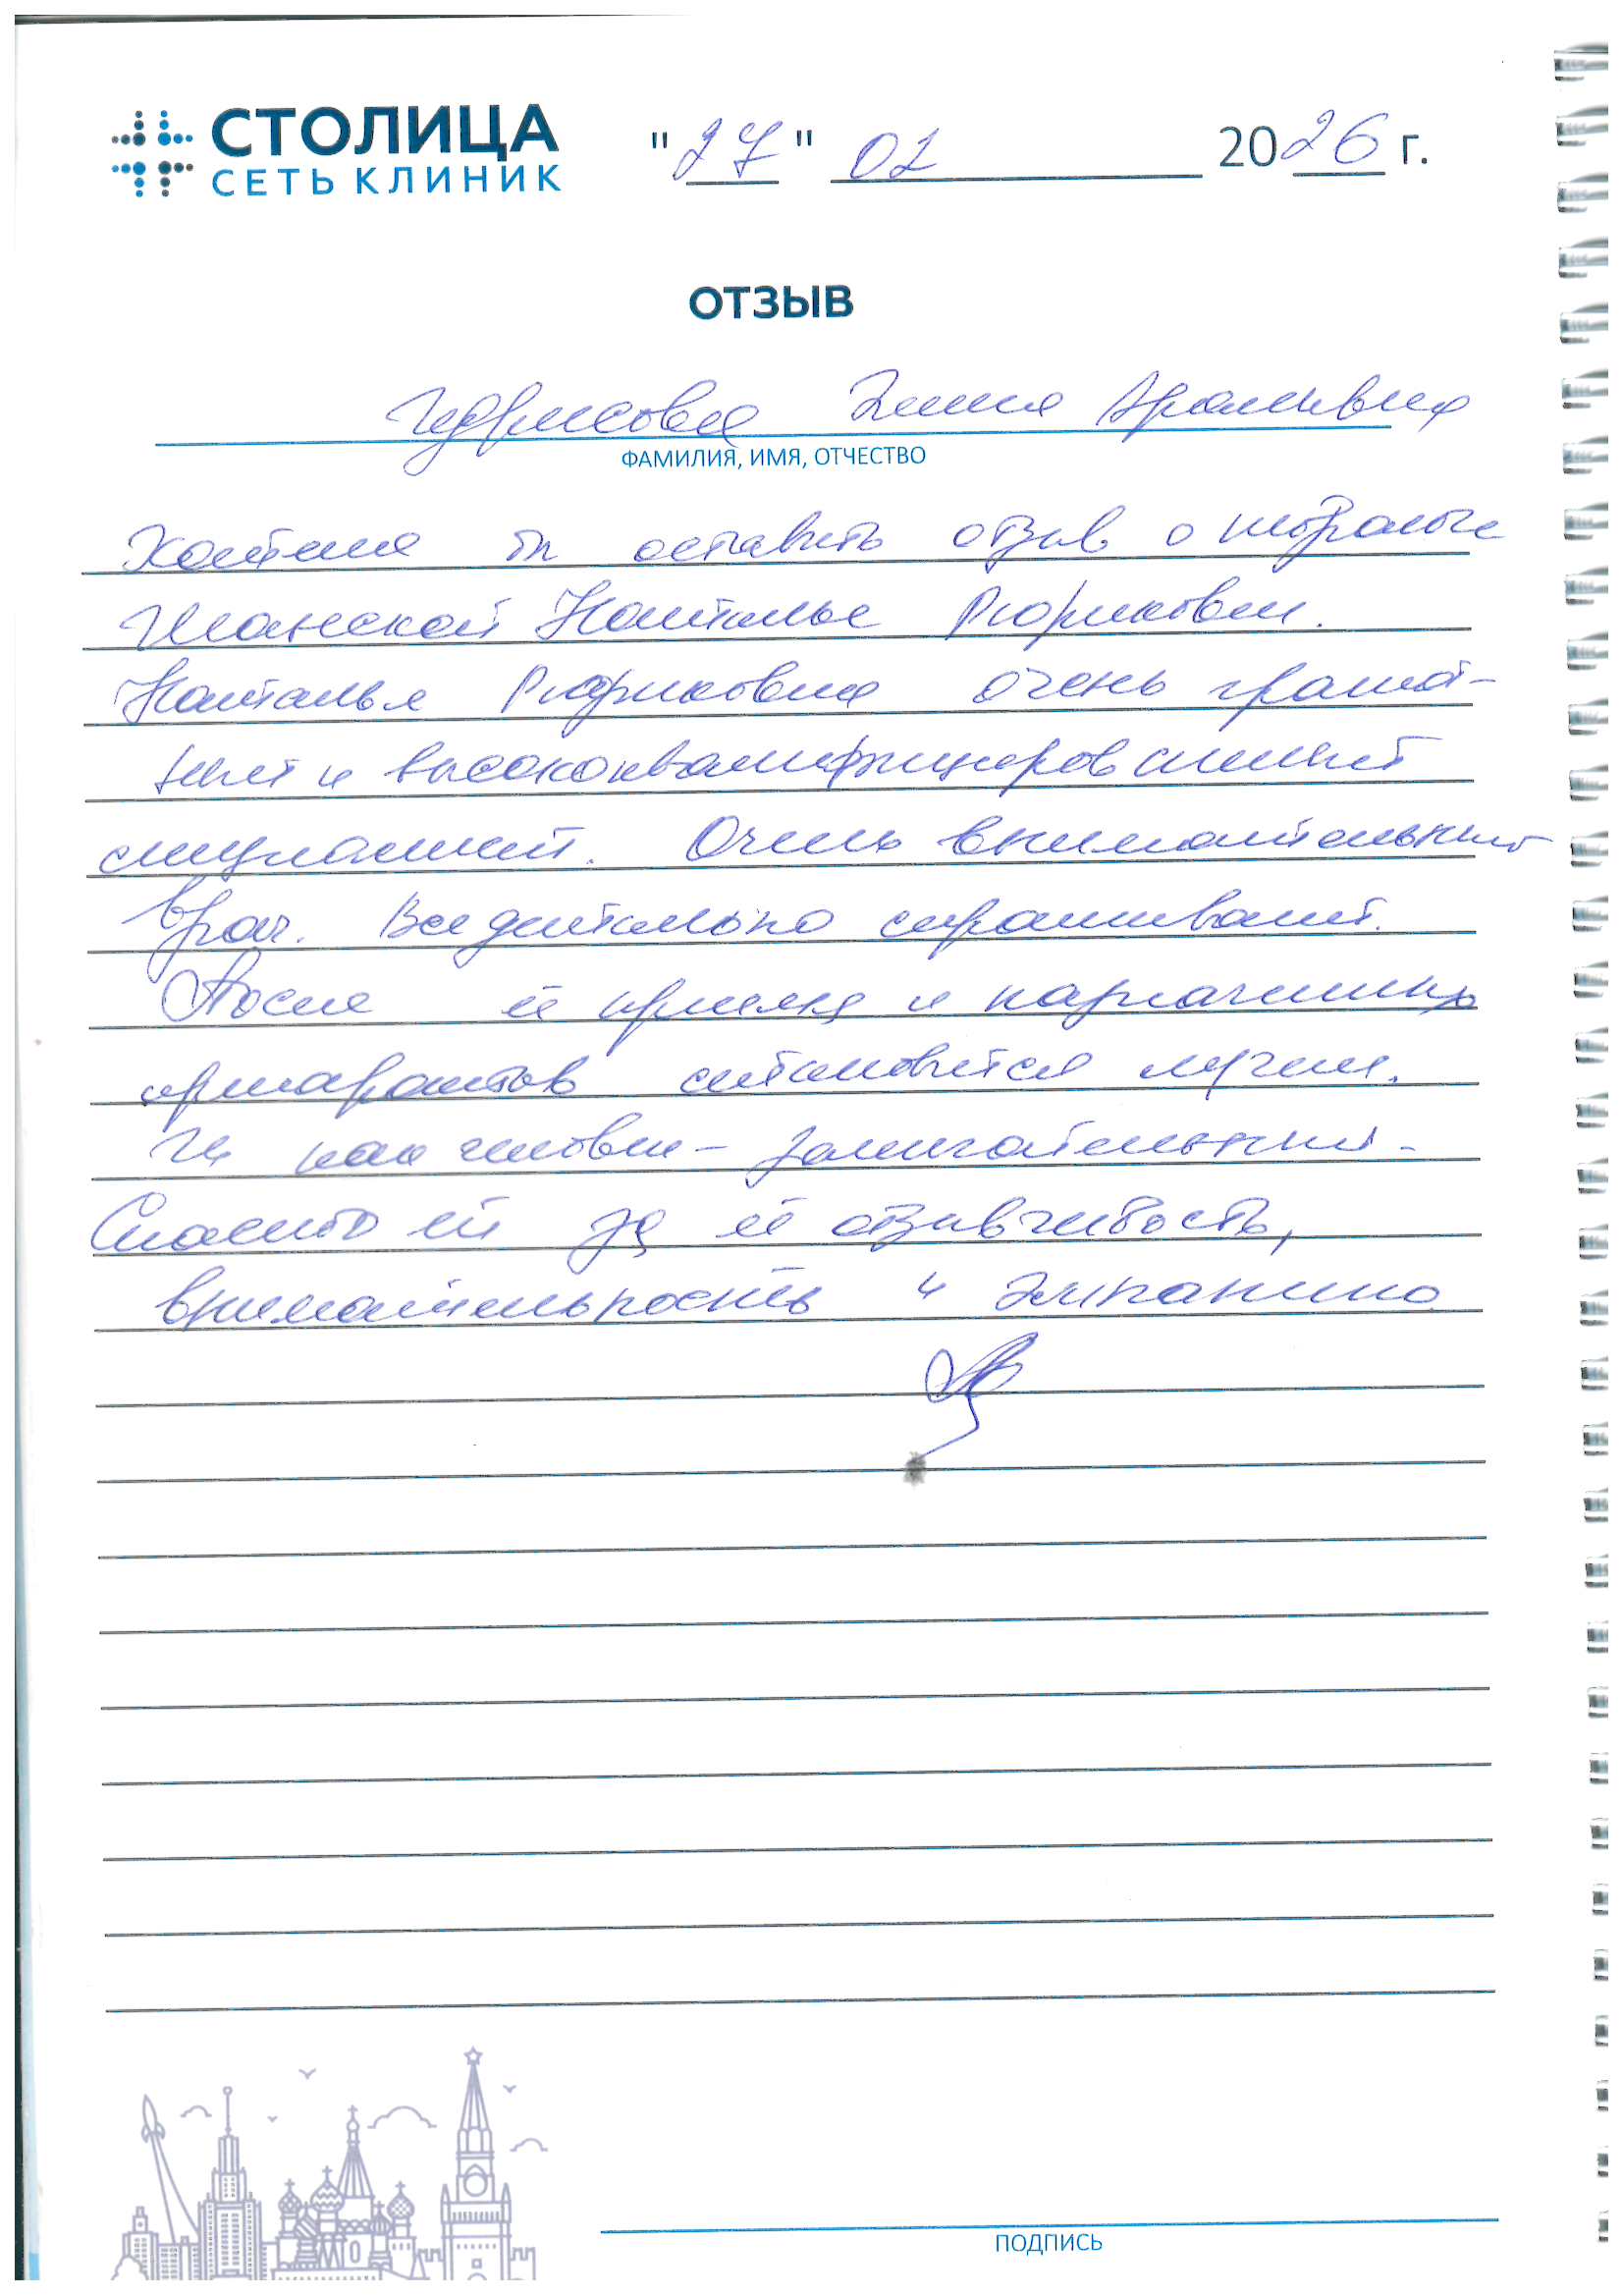 СТОЛИЦА
СЕТЬ КЛИНИК
"27" 02 2026 г.
ОТЗЫВ
Идрисова Элина
ФАМИЛИЯ, ИМЯ, ОТЧЕСТВО
Хотела бы оставить отзыв о неврологе
Наталье Рюриковне.
Наталья Рюриковна очень грамот-
ный и высококвалифицированный
специалист. Очень внимательный
врач. Все детально спрашивает.
После её приема и назначенных
препаратов становится лучше.
И как человек - замечательный.
Спасибо ей за её отзывчивость,
внимательность и эмпатию
ПОДПИСЬ